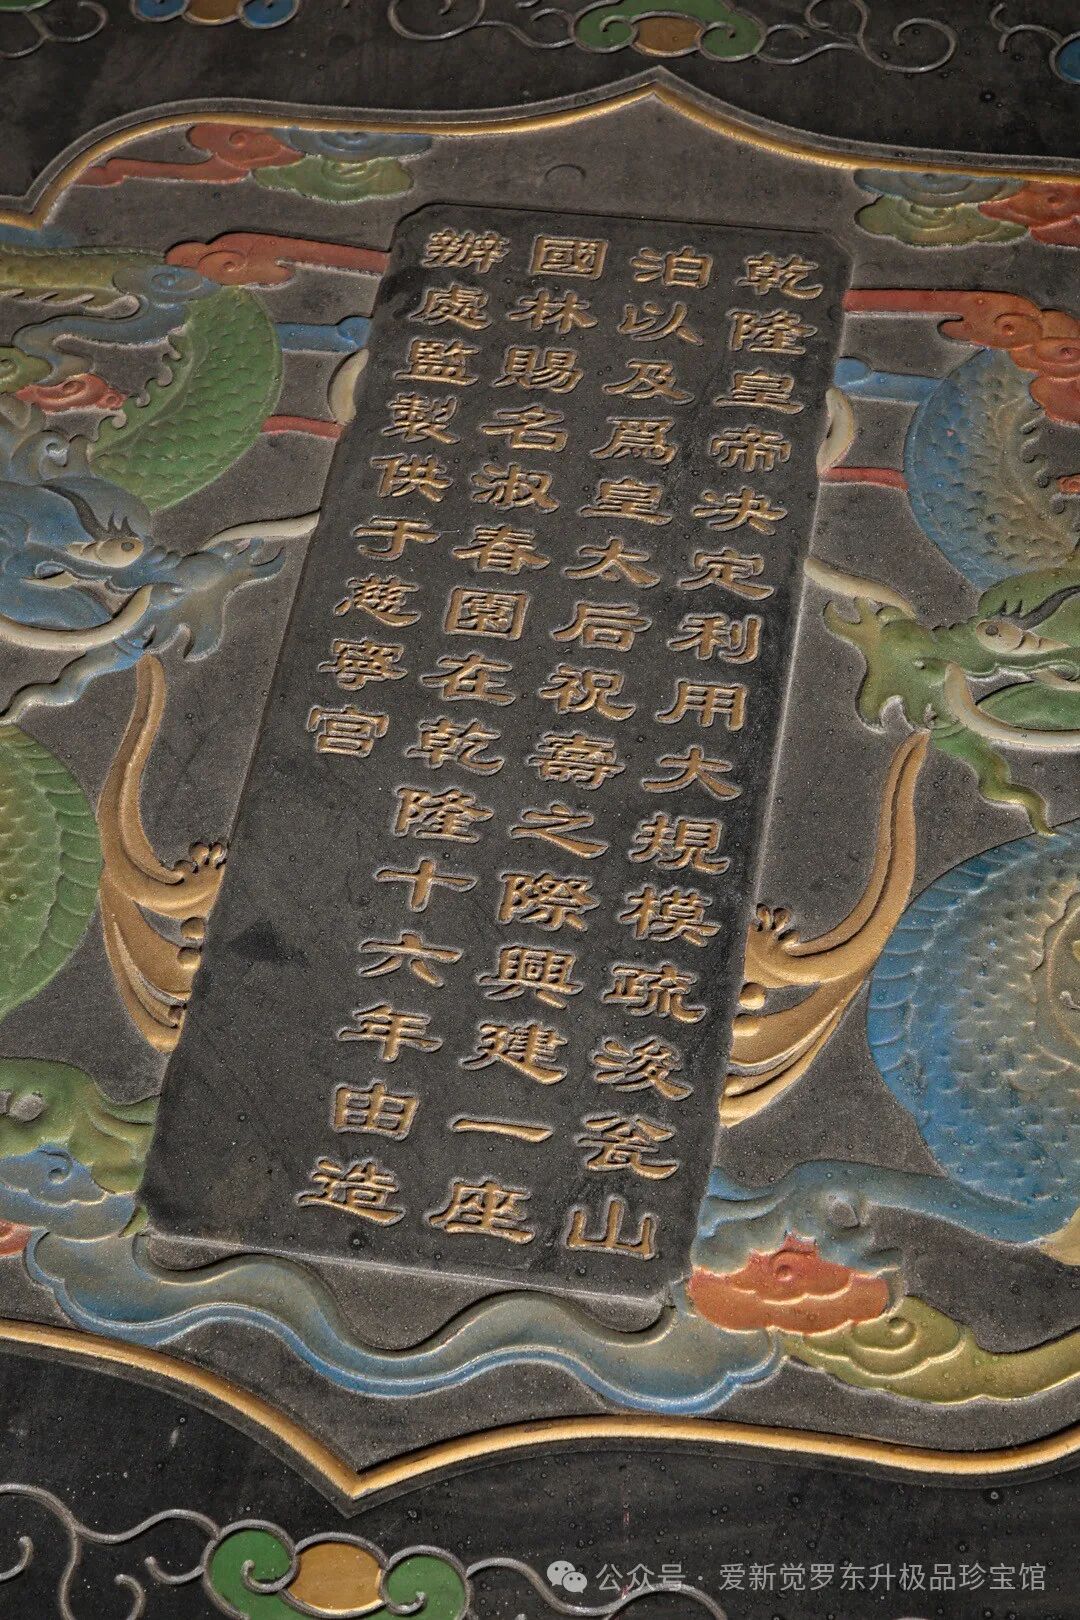 乾隆皇帝决定利用大規模疏浚瓮山
泊以及爲皇太后祝壽之際興建一座
國林賜名淑春園在乾隆十六年由造
辦處監製供于慈寧宫
公众号·爱新觉罗东升极品珍宝馆